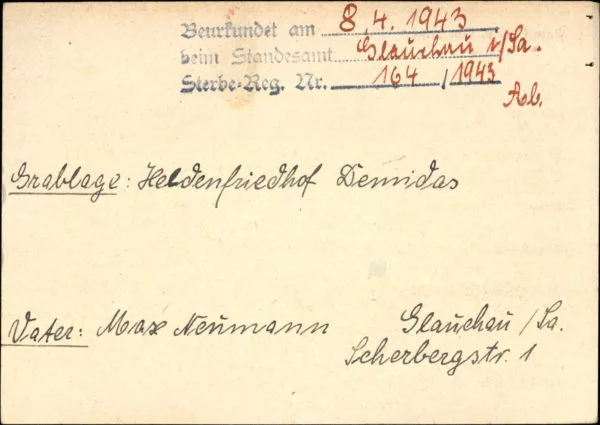 Beurkundet am 8.4.1943
beim Standesamt Glauchau i/Sa.
Sterbe-Reg. Nr. 164 / 1943
Ab.
Grablage: Heldenfriedhof Demidas
Vater: Max Neumann Glauchau /Sa.
Scherbergstr. 1